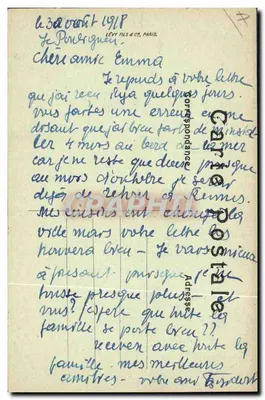 le 30 août 1918
Le Pouliguen
LÉVY FILS & Cie, PARIS.
Chère amie Emma
Je reponds à votre lettre
que j'ai reçu il y a quelques jours.
vous faites une erreur en me
disant que j'ai bien
4 mois au bord de la mer
car je ne reste que deux presque
au mois d'octobre je serai
déjà retour à Rennes.
mes
ville mais votre lettre
trouvera bien - Je vais mieux
à présent puisque je ne
tousse presque plus - et
vous? J'espère que toute la
famille se porte bien??
recevez avec toute la
famille mes meilleures
amitiés - votre ami
Carte Postale
Correspondance
Adresse
CARTE POSTALE